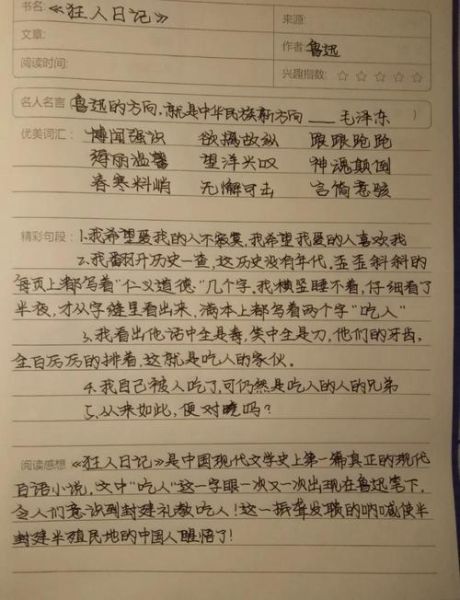 书名:《狂人日记》 来源:
文章: 作者:鲁迅
阅读时间: 兴趣指数: ☆ ☆ ☆ ☆ ☆
名人名言 鲁迅的方向,就是中华民族新方向 —— 毛泽东 )
优美词汇: 博闻强识 欲擒故纵 踉踉跄跄
望洋兴叹 神魂颠倒
春寒料峭 无懈可击 言简意骇
精彩句段: 1.我希望爱我的人不寂寞,我希望我爱的人喜欢我
2.我翻开历史一查,这历史没有年代,歪歪斜斜的
每页上都写着“仁义道德”几个字,我横竖睡不着,仔细看了
半夜,才从字缝里看出来,满本上都写着两个字“吃人”
3.我看出他话中全是毒,笑中全是刀,他们的牙齿,
全白厉厉的排着,这就是吃人的家伙。
4.我自己被人吃了,可仍然是吃人的人的兄弟
5.从来如此,便对吗?
阅读感想 《狂人日记》是中国现代文学史上第一篇真正的现代
白话小说,文中“吃人”这一字眼一次又一次出现在鲁迅笔下,
令人们意识到封建礼教吃人!这一振聋发聩的呐喊使半
封建半殖民地的中国人醒悟了!